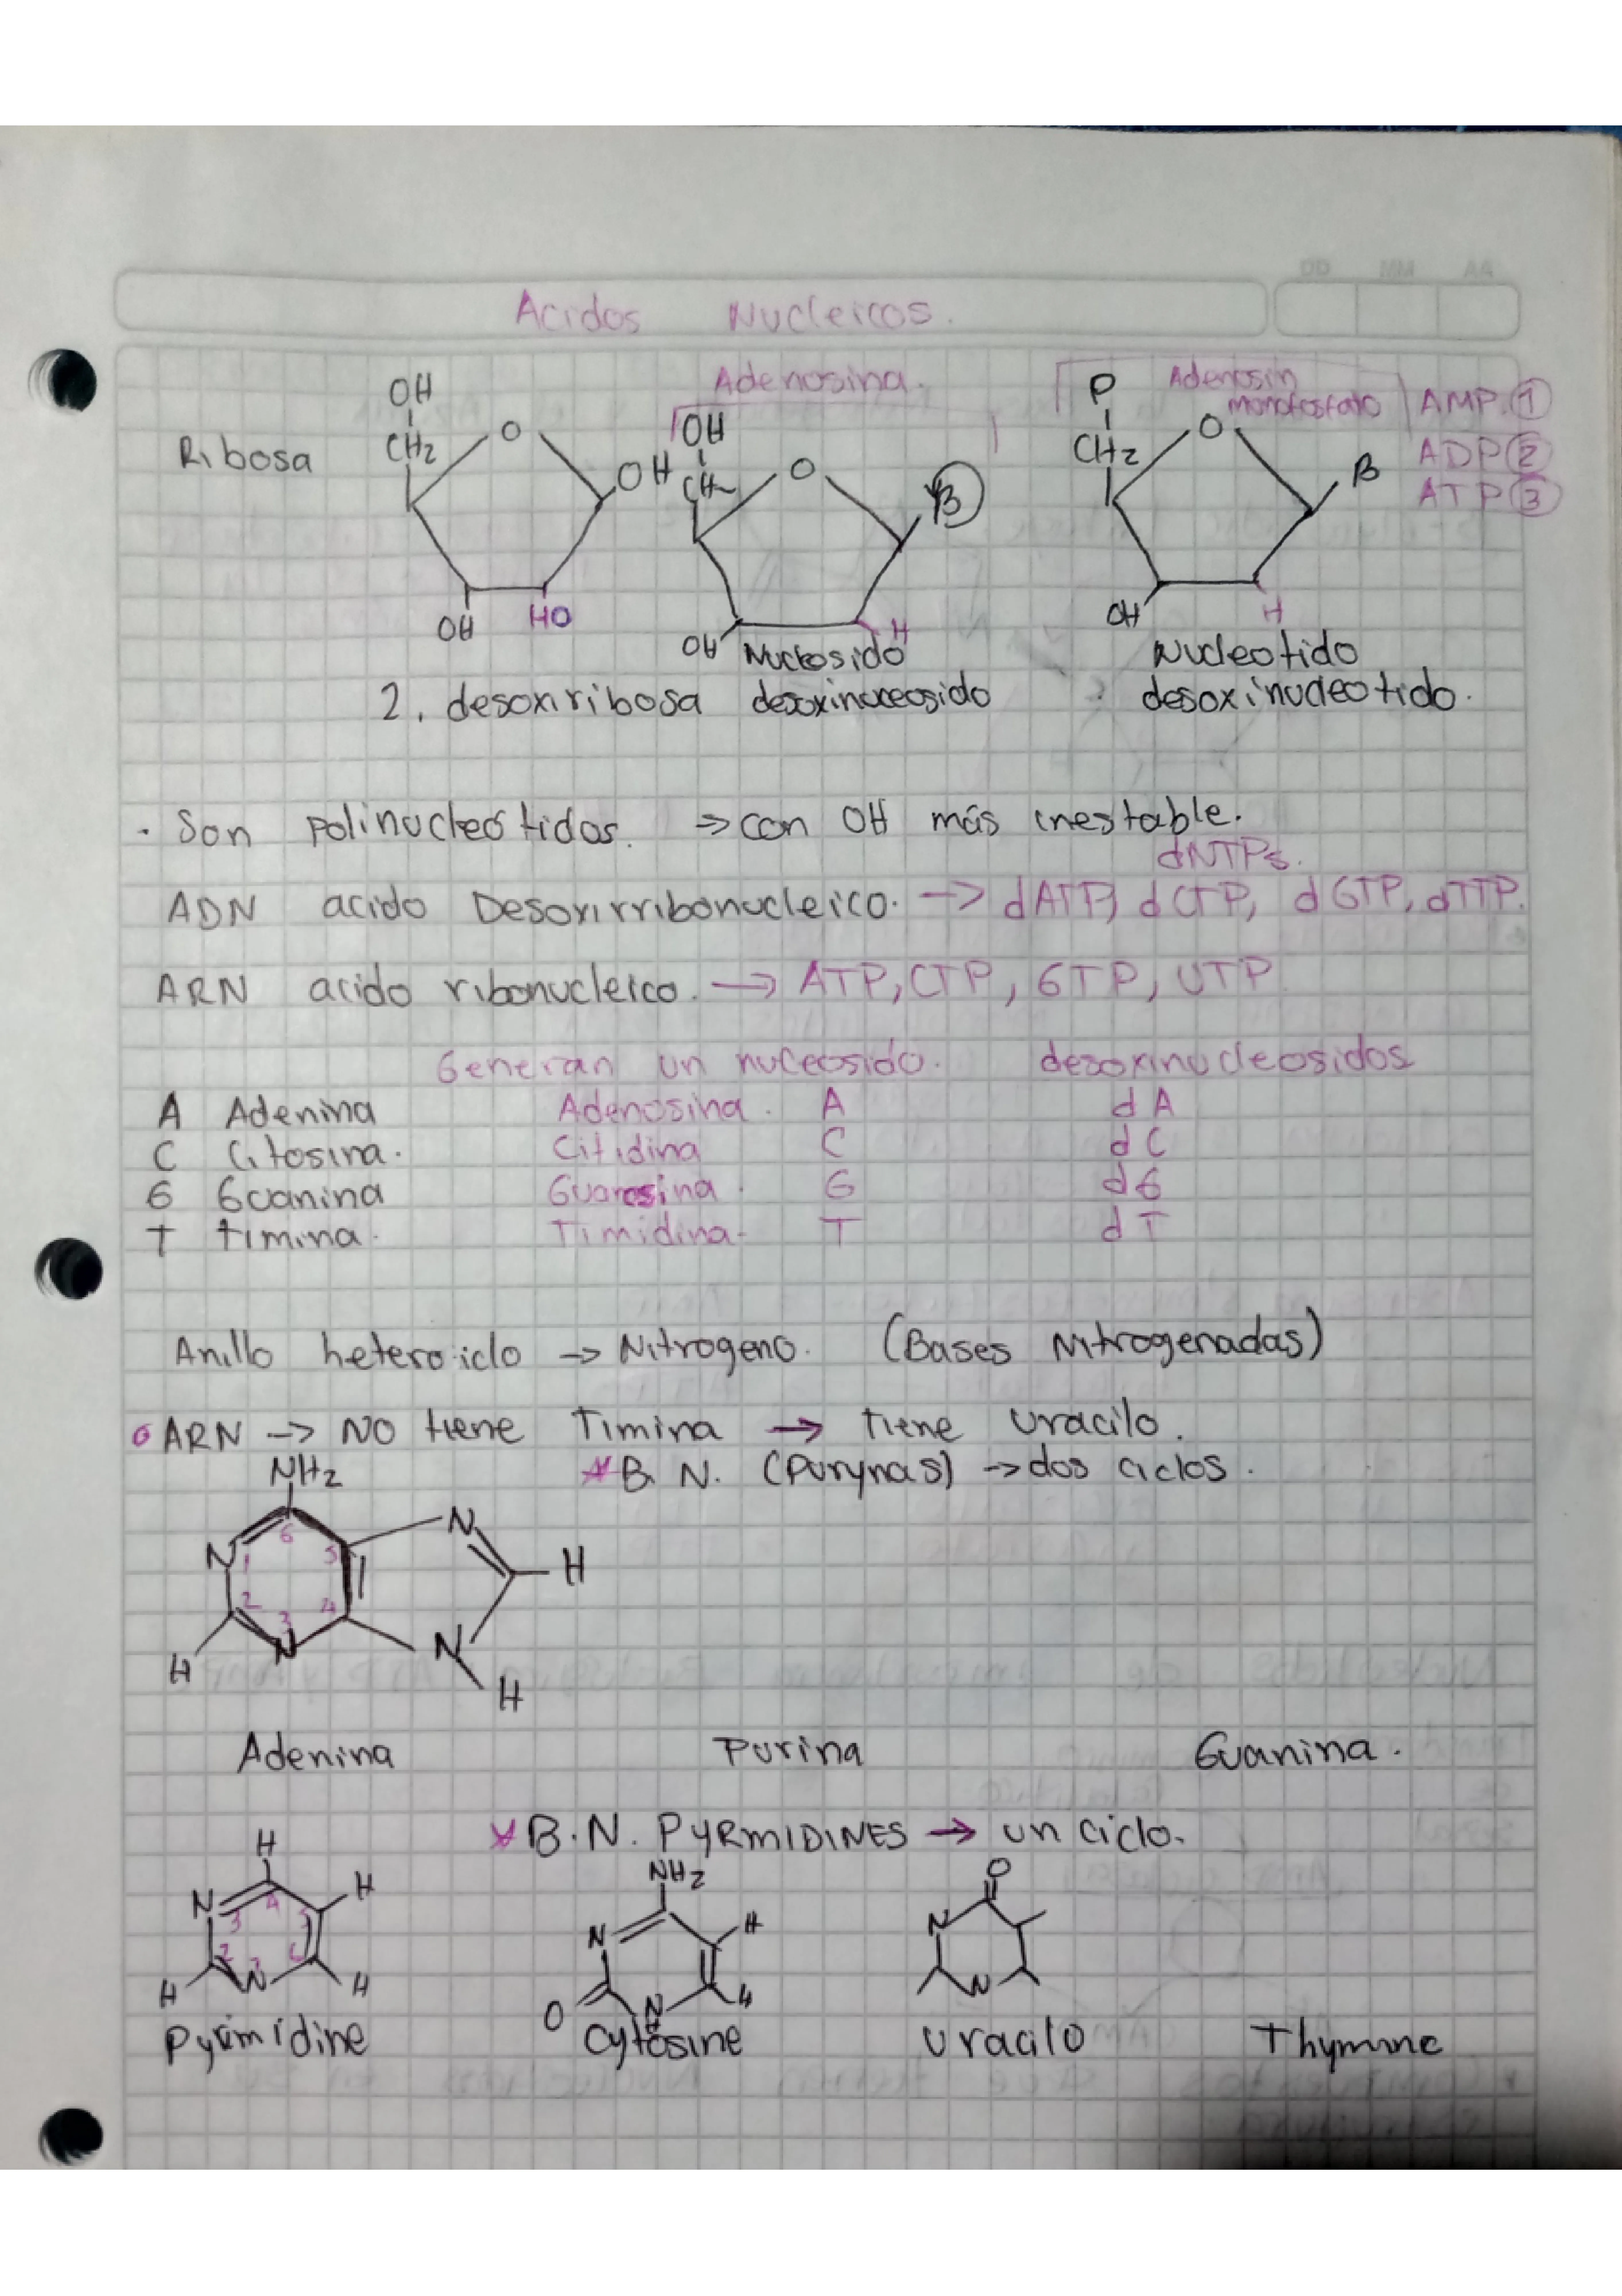 Acidos Nucleicos.
Ribosa
OH
CH2
O
OH
OH
HO
Adenosina.
OH
CH
O
B
OH
H
Adenosin
monofosfato
P
CH2
O
B
OH
H
AMP. 1
ADP 2
ATP 3
Nucleosido
Nucleotido
2. desoxiribosa desoxinucleosido desoxinucleotido.
. Son polinucleótidos. → con OH más inestable.
dNTPs.
ADN acido Desoxirribonucleico. → dATP, dCTP, dGTP, dTTP.
ARN acido ribonucleico. → ATP, CTP, GTP, UTP
Generan un nuceosido. desoxinucleosidos
A Adenina Adenosina. A dA
C Citosina. Citidina C dC
G Guanina Guanosina. G dG
T timina. Timidina- T dT
Anillo heterociclo → Nitrogeno. (Bases Nitrogenadas)
ARN → NO tiene Timina → Tiene uracilo.
B. N. (Purynas) → dos ciclos.
NH2
N
6
5
N
1
H
2
3
4
N
N
H
H
Adenina Purina Guanina.
B.N. PYRMIDINES → un ciclo.
H
N
4
H
3
5
2
N
H
H
NH2
N
H
O
N
H
O
N
N
Pyrimidine Cytosine uracilo Thymine